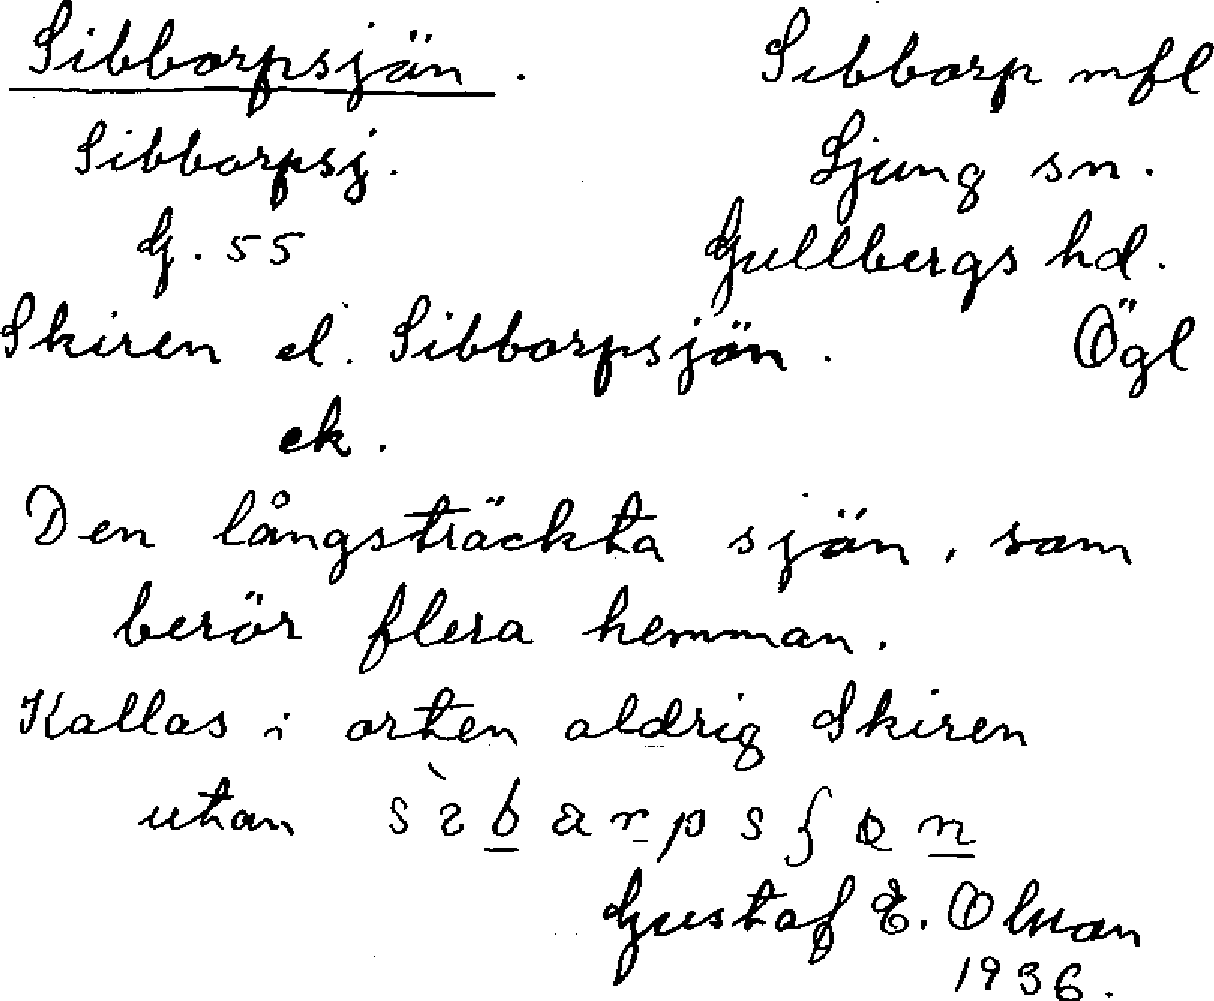 Sibborpsjön.
Sibborp mfl
Sibborpsj.
Ljung sn.
G. 55
Gullbergs hd.
Skiren el. Sibborpsjön.
Ögl
ek.
Den långsträckta sjön, som
berör flera hemman.
Kallas i orten aldrig Skiren
utan
Gustaf E. Olson
1936.